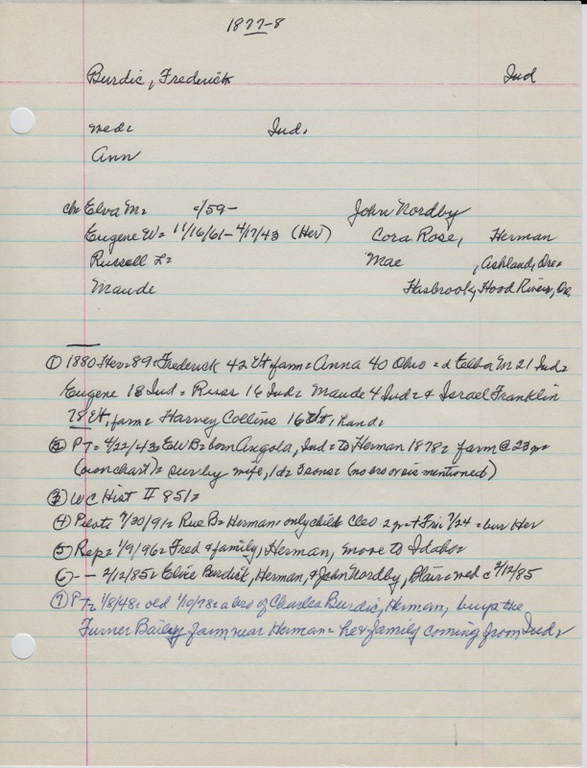 1877-8
Burdic, Frederick Ind
med= Ind.
Ann
ch= Elva M= c/59- John Nordby
Eugene W= 11/16/61-4/17/43 (Her) Cora Rose, Herman
Russell L= Mae , Ashland, Ore=
Maude Hasbrook, Hood River, Ore
① 1880 Her=89= Frederick 42 Vt farm= Anna 40 Ohio= d M 21 Ind=
Eugene 18 Ind= Russ 16 Ind= Maude 4 Ind= & Israel Franklin
78 Vt, farm= Harvey Collins 16 hand=
② PT= 4/22/43= EWB= born Angola, Ind= to Herman 1878= farm @ 23 yr=
surby wife, 1d= 3 sons= (no bro or sis mentioned)
③ WC Hist II 851=
④ Pilot= 7/30/91= Rue B= Herman= only child Cleo 2 yr + Fri 7/24= bur Her
⑤ Rep= 1/9/96= Fred & family, Herman, move to Idaho=
⑥ -- 2/12/85= Elvie Burdick, Herman, & John Nordby, Blair= med c 2/12/85
⑦ PT= 1/8/48= old 1/10/78= a bro of Charles Burdic, Herman, buys the
Turner Bailey farm near Herman= he & family coming from Ind=